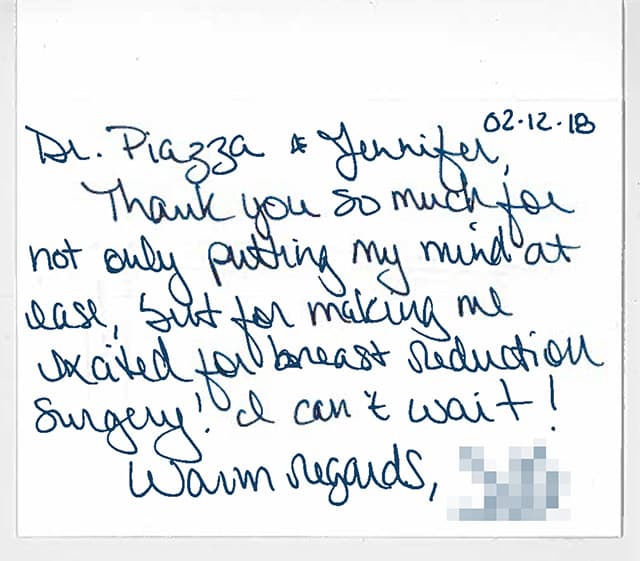 02-12-18
Dr. Piazza & Jennifer,
Thank you so much for
not only putting my mind at
ease, but for making me
excited for breast reduction
surgery! I can't wait!
Warm regards,